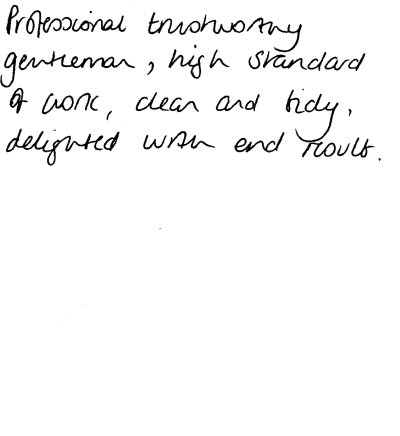 Professional trustworthy
gentleman, high standard
of work, clean and tidy,
delighted with end result.